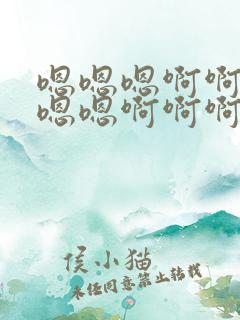 嗯嗯嗯啊啊
嗯嗯啊啊啊
侯小猫
未经同意禁止转载